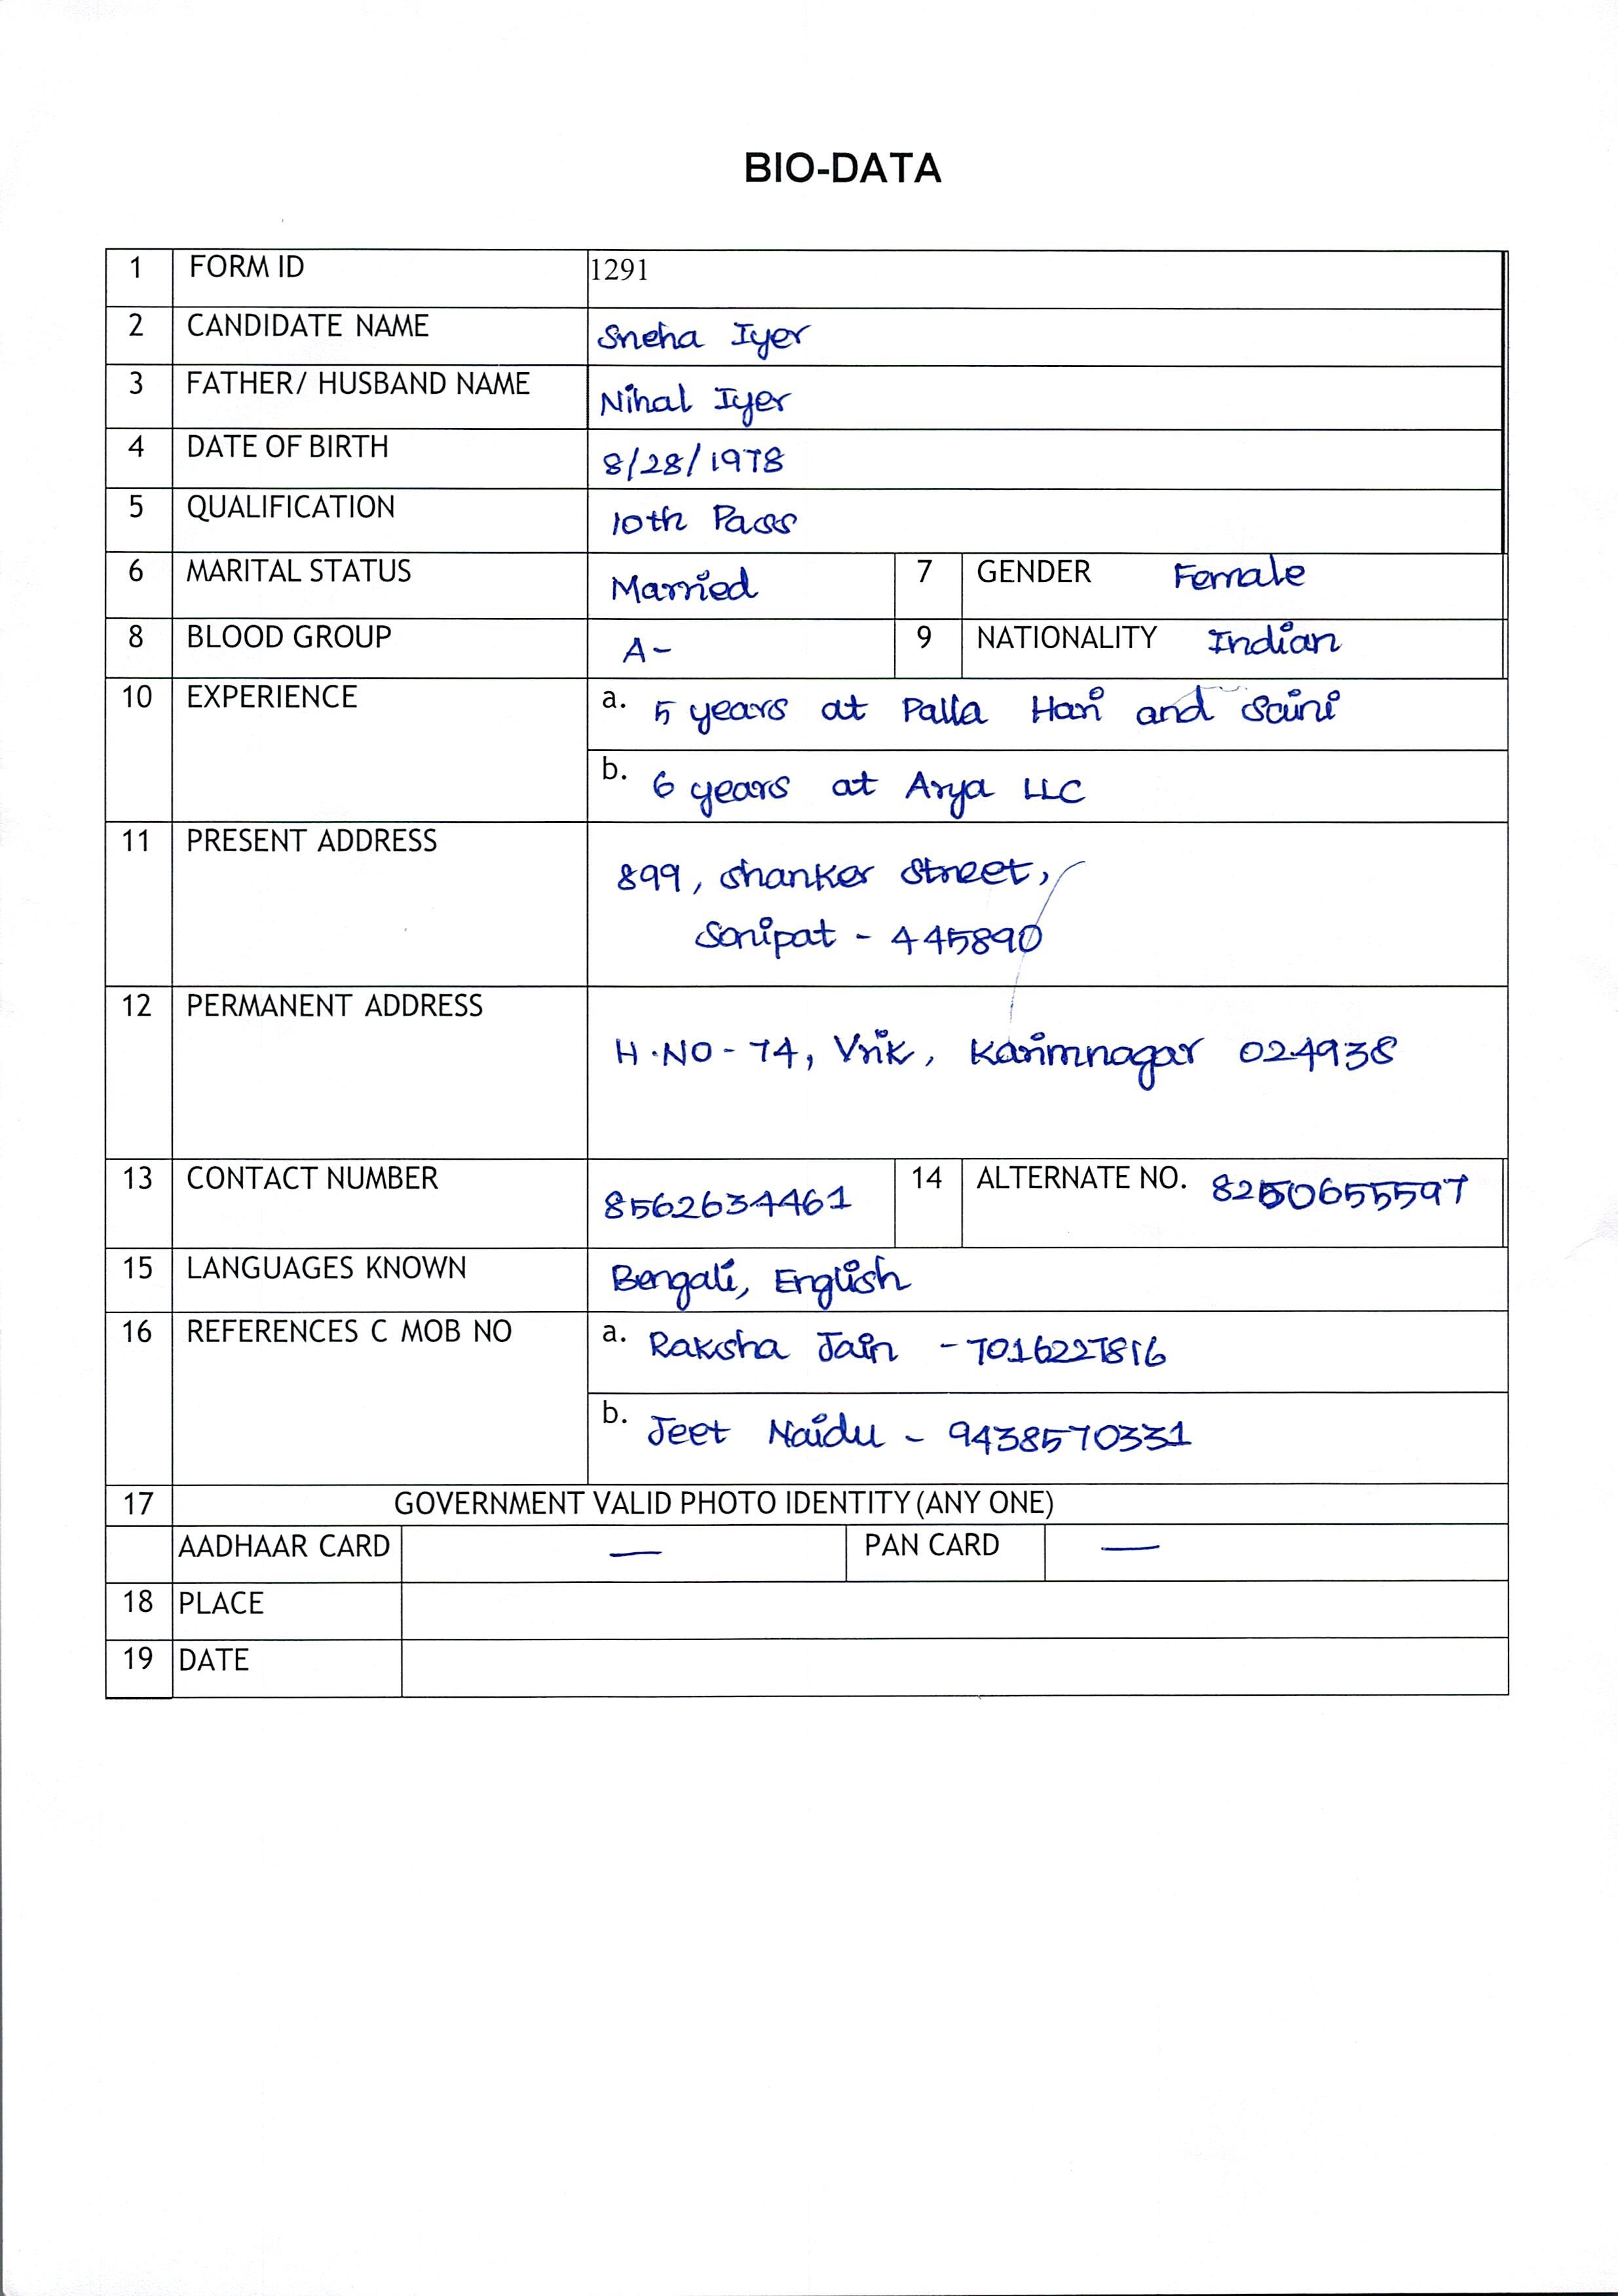 BIO-DATA
1 FORM ID 1291
2 CANDIDATE NAME Sneha Iyer
3 FATHER/ HUSBAND NAME Nihal Iyer
4 DATE OF BIRTH 8/28/1978
5 QUALIFICATION 10th Pass
6 MARITAL STATUS Married 7 GENDER Female
8 BLOOD GROUP A- 9 NATIONALITY Indian
10 EXPERIENCE a. 5 years at Palla Hari and Saini
b. 6 years at Arya LLC
11 PRESENT ADDRESS 899, Shanker Street,
Sonipat - 445890
12 PERMANENT ADDRESS H.NO-74, Vrik, Karimnagar 024938
13 CONTACT NUMBER 8562634461 14 ALTERNATE NO. 8250655597
15 LANGUAGES KNOWN Bengali, English
16 REFERENCES C MOB NO a. Raksha Jain - 7016227816
b. Jeet Naidu - 9438570331
17 GOVERNMENT VALID PHOTO IDENTITY (ANY ONE)
AADHAAR CARD — PAN CARD —
18 PLACE
19 DATE